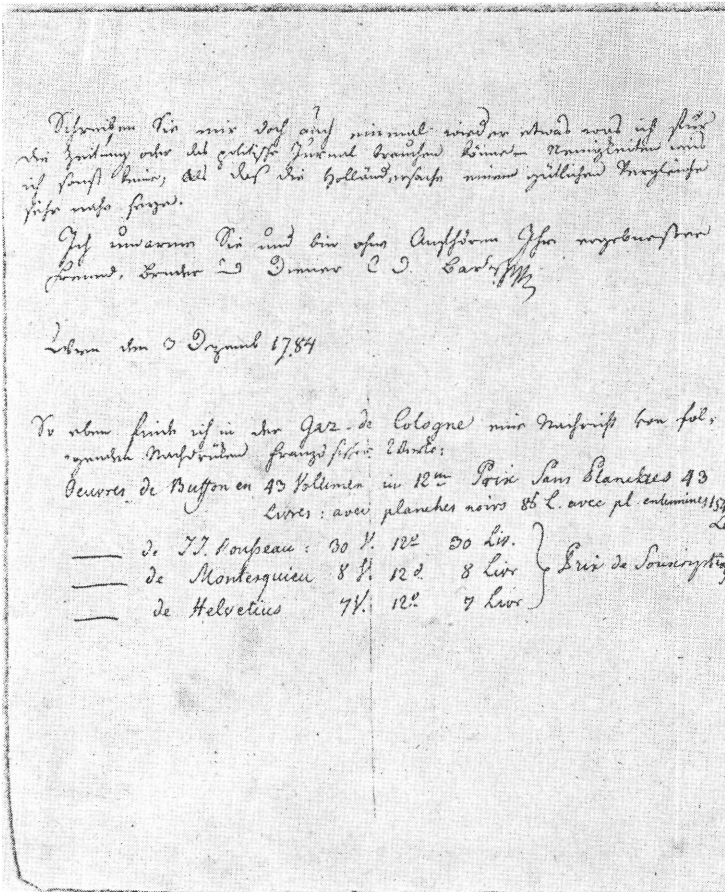 Schreiben Sie mir doch auch einmal wieder etwas was ich für
die Zeitung oder das politische Jurnal brauchen könne. Neuigkeiten weis
ich sonst keine, als daß die Holländersache einem gütlichen Vergleiche
sehr nahe seye.
Ich umarme Sie und bin ohne Aufhören Ihr ergebnester
Freund, Bruder und Diener C. D. Bartsch
Wien den 3 Dezemb 1784
So eben finde ich in der Gaz. de Cologne eine Nachricht von fol-
genden Nachdrüken französischer Werke:
Oeuvres de Buffon en 43 Volumen in 12mo Prix Sans Planches 43
Livres: avec planches noirs 86 L. avec pl. enluminées 154
___ de J J. Rousseau: 30 V. 12o 30 Liv.
___ de Montesquieu 8 V. 12o 8 Livr
___ de Helvetius 7 V. 12o 7 Livr
Prix de Souscription